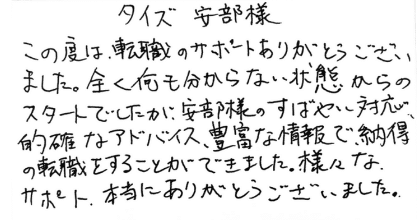 タイズ 安部様
この度は、転職のサポートありがとうござい
ました。全く何も分からない状態からの
スタートでしたが、安部様のすばやい対応、
的確なアドバイス、豊富な情報で、納得
の転職をすることができました。様々な
サポート、本当にありがとうございました。